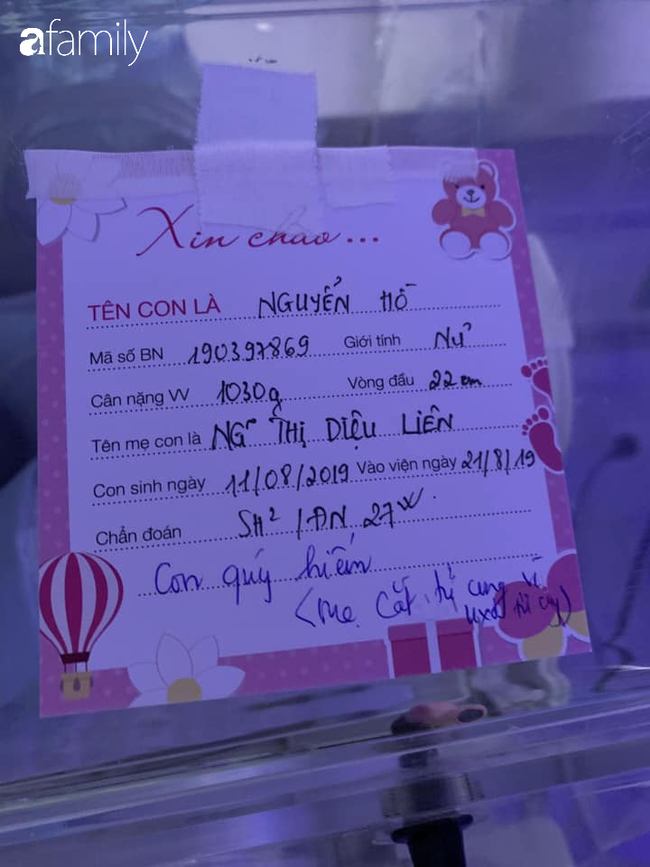 afamily
Xin chào...
TÊN CON LÀ NGUYỄN HỒ
Mã số BN 190397869 Giới tính Nữ
Cân nặng VV 1030g Vòng đầu 22 cm
Tên mẹ con là NG~ THỊ DIỆU LIÊN
Con sinh ngày 11/08/2019 Vào viện ngày 21/8/19
Chẩn đoán SH² / ĐN 27W.
Con quý hiếm
(Mẹ cắt tử cung vì
uxơ tử cung)